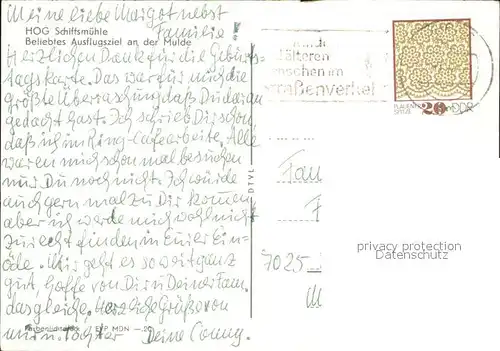 Meine liebe Margot nebst
Familie!
HOG Schiffsmühle
Beliebtes Ausflugsziel an der Mulde
Herzlichen Dank für die Geburts-
tagskarte. Das war für mich die
größte Überraschung daß Du daran
gedacht hast. Ich schrieb Dir schon
daß ich im Ring-Cafe arbeite. Alle
waren mich schon mal besuchen
nur Du noch nicht. Ich würde
auch gern mal zu Dir kommen
aber ich werde mich wohl nicht
zurecht finden in Eurer Ein-
öde. Mir geht es soweit ganz
gut, hoffe von Dir u Deiner Fam.
das gleiche. Herzliche Grüße von
mir u. Tochter Deine Conny.
EVP MDN
DTVL
älteren
enschen im
raßenverkeh
PLAUENER
SPITZE
20
DDR
Fam
F
7025
M
privacy protection
Datenschutz